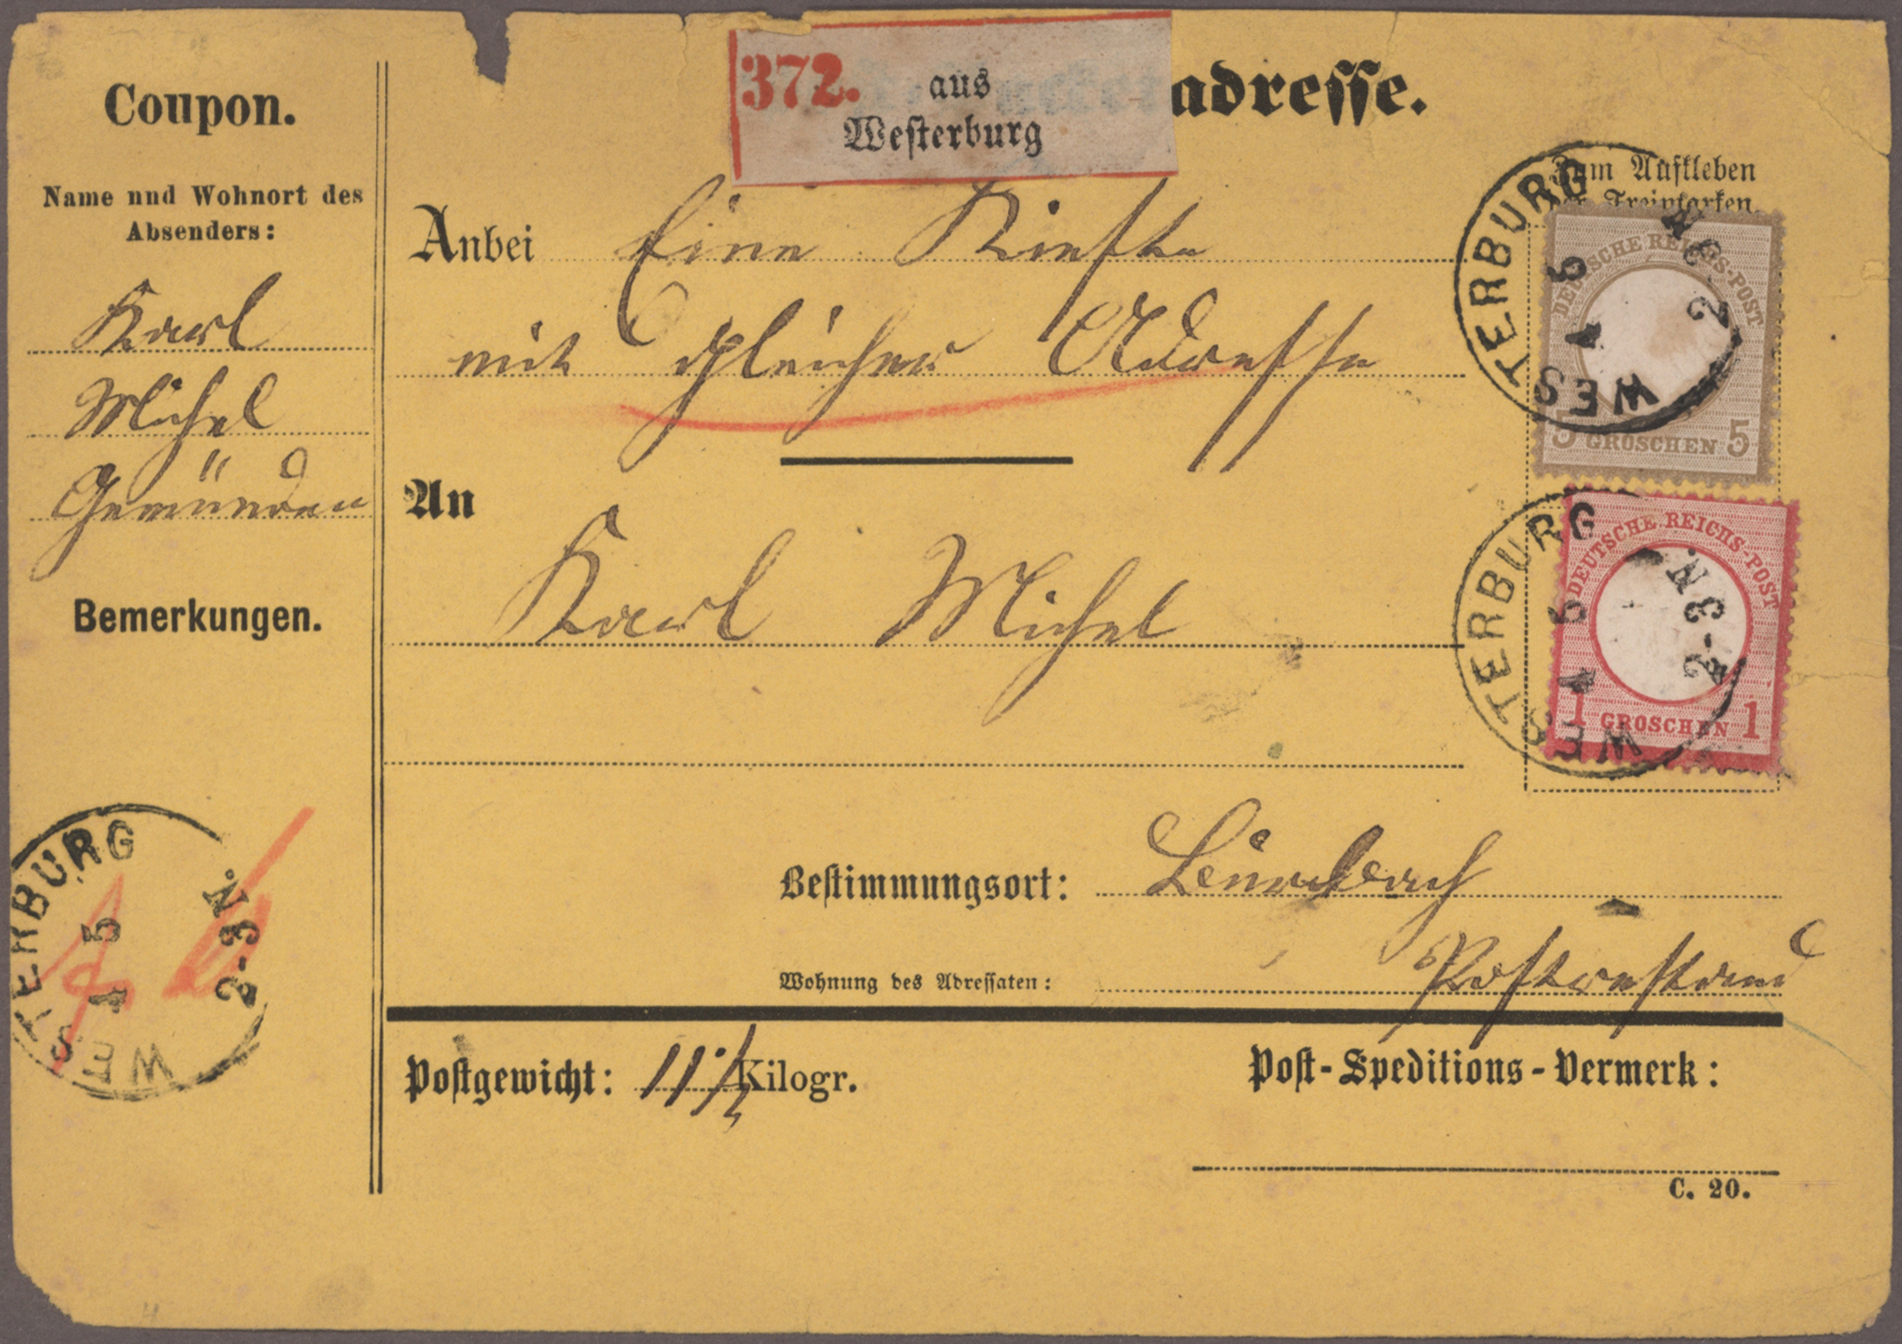 Coupon.
Name und Wohnort des
Absenders:
Karl
Michel
Gemünden
Bemerkungen.
WESTERBURG
5 4
2-3 N.
372. aus
Westerburg
adresse.
Zum Aufkleben
der Freimarken.
Anbei Eine Kiste
mit gleicher Adresse
An
Karl Michel
DEUTSCHE REICHS-POST
5 GROSCHEN 5
WESTERBURG
5 4
2-3 N.
DEUTSCHE REICHS-POST
1 GROSCHEN 1
WESTERBURG
5 4
2-3 N.
Bestimmungsort:
Wohnung des Adressaten: Postrestand
Postgewicht: 11 1/2 Kilogr.
Post-Speditions-Vermerk:
C. 20.